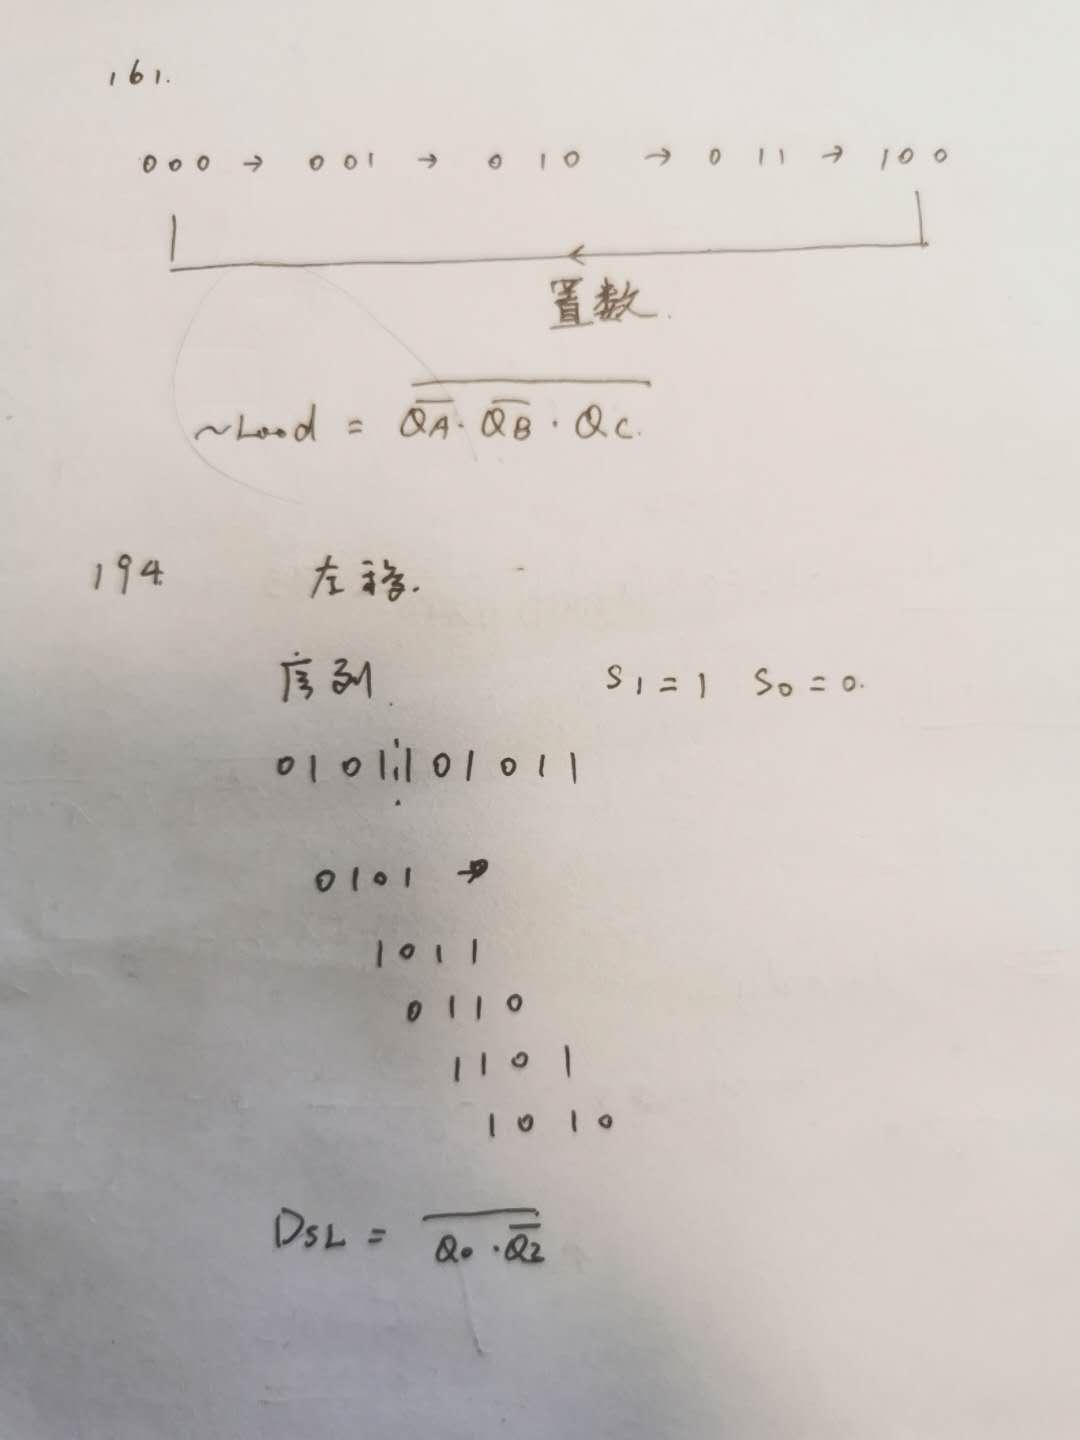 161.
000 → 001 → 010 → 011 → 100
置数.
~Load = \overline{\overline{QA}·\overline{QB}·QC}.
194
左移.
序列.
S1=1 S0=0.
0101¦101011
0101 →
1011
0110
1101
1010
DSL = \overline{Q0·\overline{Q2}}